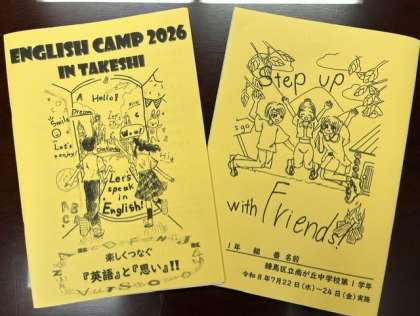 ENGLISH CAMP 2026
IN TAKESHI
A Hello!!
Smile
Dream
&
Wow!
Let's
enjoy!
Let's
speak
in
English!
ABC
楽しくつなぐ
『英語』と『思い』!!
Step up
with Friends!
1年 組 番 名前
練馬区立南が丘中学校第1学年
令和8年7月22日(水)~24日(金)実施